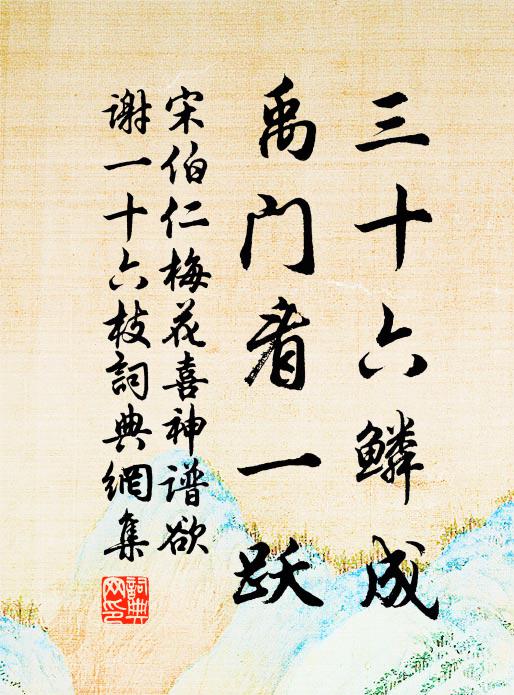 三十六鳞成
禹门看一跃
宋伯仁梅花喜神谱欲
谢一十六枝詞典網集
詞典網印